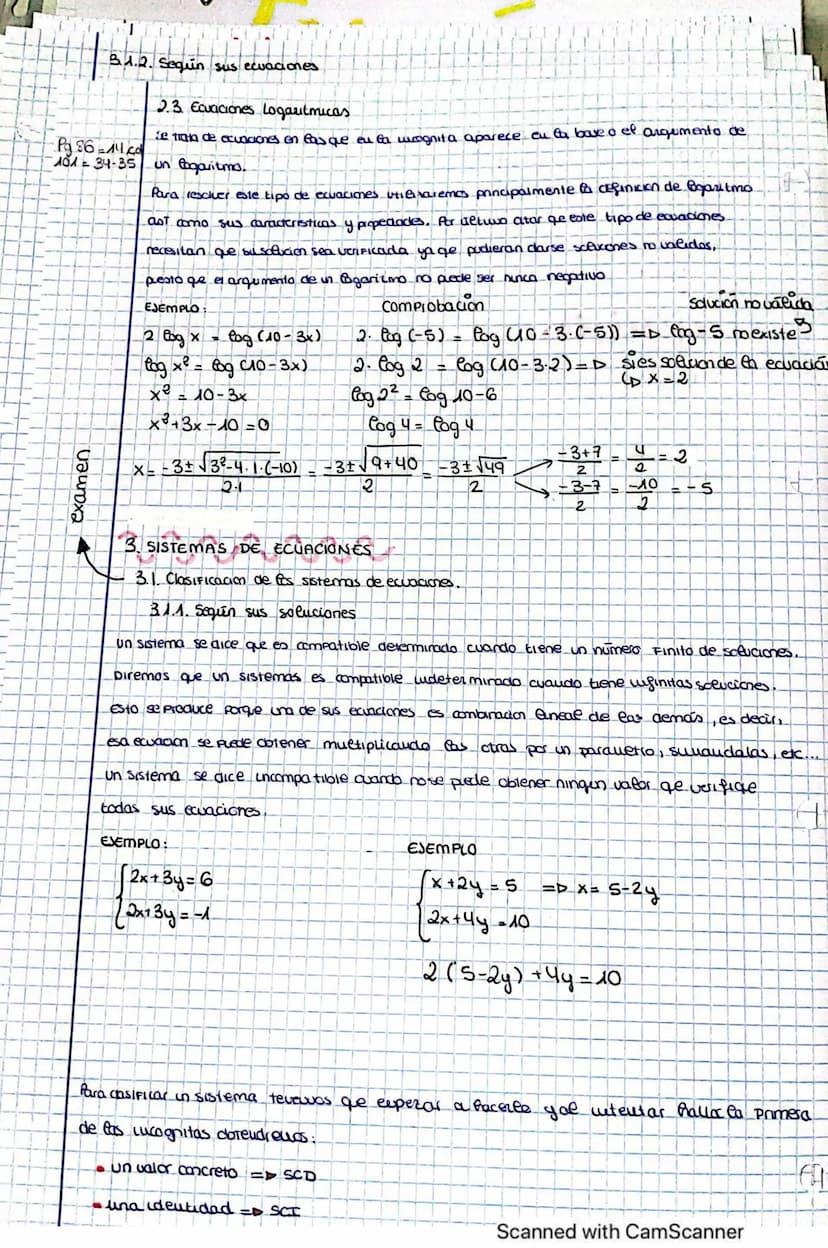 3.1.2. Según sus ecuaciones
2.3. Ecuaciones Logarítmicas
Pg 86 = 14 cd
101 = 34-35
Se trata de ecuaciones en las que en la incognita aparece en la base o el argumento de
un logaritmo.
Para resolver este tipo de ecuaciones utilizaremos principalmente la definicion de logaritmo
así como sus características y propiedades. Por último citar qe este tipo de ecuaciones
necesitan que su solucion sea verificada ya qe pudieran darse soluciones no validas,
puesto que el argumento de un logaritmo no puede ser nunca negativo
EJEMPLO: Comprobación Solución no válida
2 log x = log (10-3x) 2. log (-5) = log (10-3.(-5)) => log-5 no existe
log x² = log (10-3x) 2. log 2 = log (10-3.2) => si es solucion de la ecuación
x² = 10-3x log 2² = log 10-6 ↳ x=2
x²+3x-10=0 log 4 = log 4
x= -3±√3²-4.1.(-10) / 2.1 = -3±√9+40 / 2 = -3±√49 / 2 -3+7 / 2 = 4 / 2 = 2
-3-7 / 2 = -10 / 2 = -5
examen
3. SISTEMAS DE ECUACIONES
3.1. Clasificacion de los sistemas de ecuaciones.
3.1.1. Según sus soluciones
Un sistema se dice que es compatible determinado cuando tiene un número finito de soluciones.
Diremos que un sistemas es compatible indeterminado cuando tiene infinitas soluciones.
Esto se produce porque una de sus ecuaciones es combinacion lineal de las demás, es decir,
esa ecuacion se puede obtener multiplicando las otras por un parametro, sumandolas, etc...
Un sistema se dice incompatible cuando no se puede obtener ningun valor qe verifiqe
todas sus ecuaciones.
EJEMPLO: EJEMPLO
2x+3y=6 x+2y=5 => x=5-2y
2x+3y=-1 2x+4y=10
2(5-2y)+4y=10
Para clasificar un sistema tenemos que empezar a hacerlo y al intentar hallar la primera
de las incognitas obtendremos:
• un valor concreto => SCD
• una identidad => SCI
Scanned with CamScanner